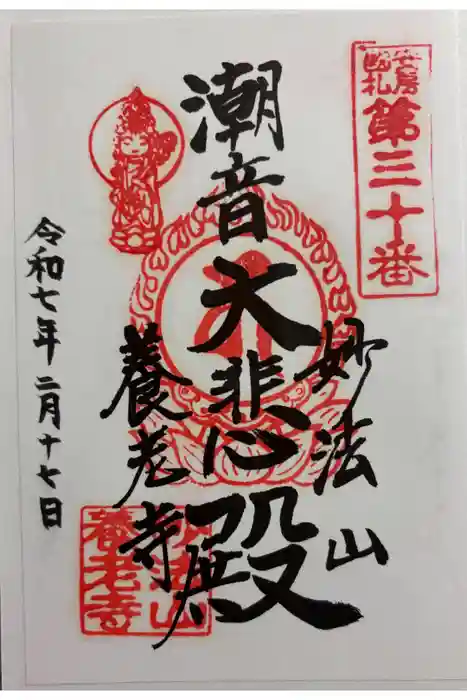 安房
国札
第三十番
妙法山
潮音
大悲殿
養老寺
令和七年二月十七日
妙法山
養老寺